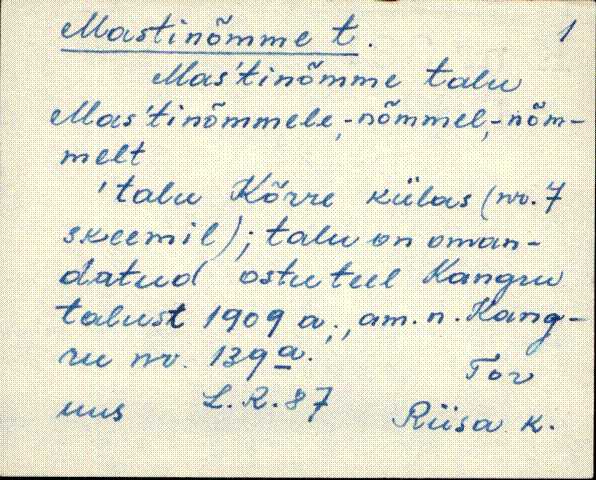 Mastinõmme t. 1
Mas'tinõmme talu
Mas'tinõmmele, -nõmmel, -nõm-
melt
'talu Kõrre külas (nr. 7
skeemil); talu on oman-
datud ostu teel Kangru
talust 1909 a.; am. n. Kang-
ru nr. 139a.
Tor
uus L.R.87 Riisa k.